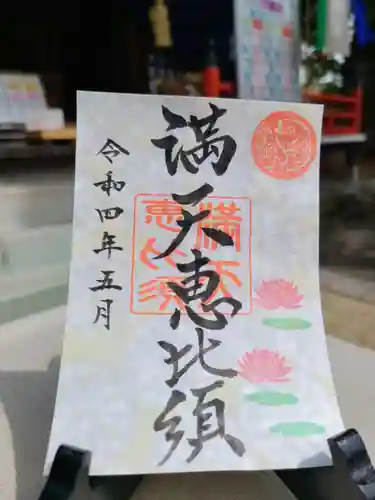 満天恵比須
令和四年五月
満天
恵比須